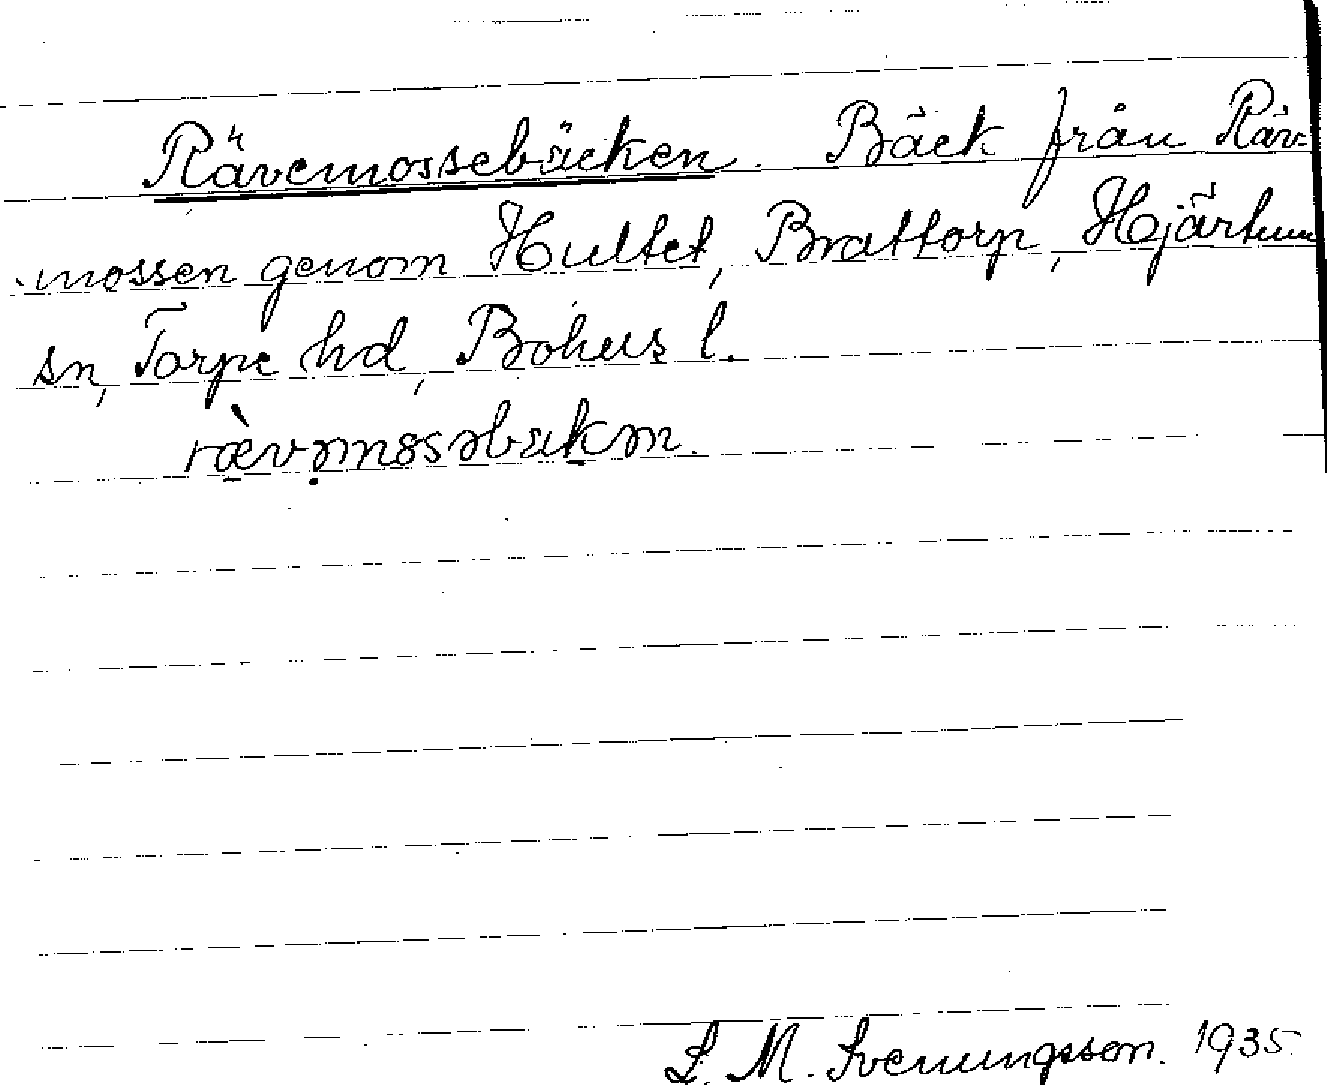 Rävemossebäcken. Bäck från Räv-
mossen genom Hultet, Brattorp, Hjärtum
sn, Torpe hd, Bohus l.
S. M. Svenungsson. 1935.